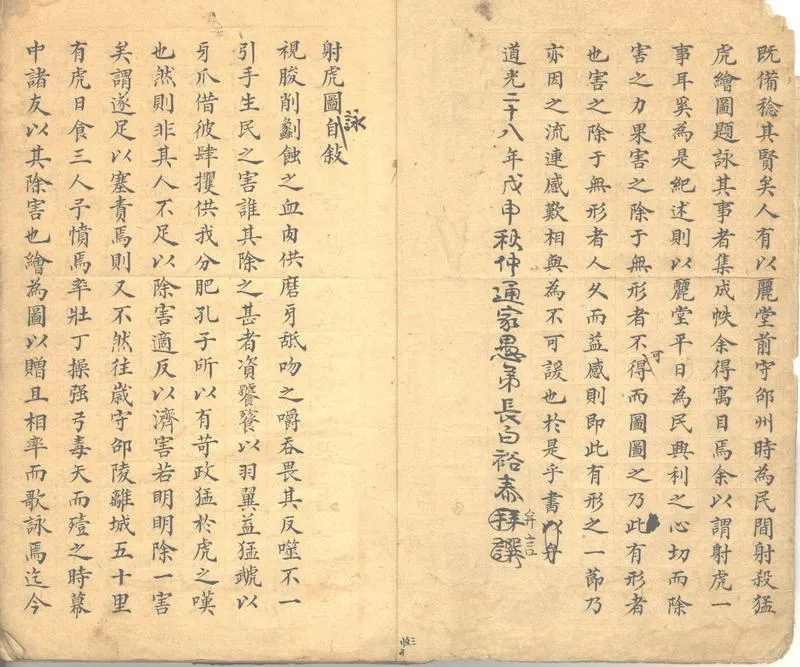 既備稔其賢矣人有以麗堂前守邵州時為民間射殺猛
虎繪圖題詠其事者集成帙余得寓目焉余以謂射虎一
事耳奚為是紀述則以麗堂平日為民興利之心切而除
害之力果害之除于無形者不可得而圖圖之乃此有形者
也害之除于無形者人久而益感則即此有形之一節乃
亦因之流連感歎相與為不可諼也於是乎書以弁
道光二十八年戊申秋仲通家愚弟長白裕泰拜譔
弁言
射虎圖自敍
詠
視朘削劙蝕之血肉供磨牙舐吻之嚼吞畏其反噬不一
引手生民之害誰其除之甚者資饕餮以羽翼益猛虣以
牙爪借彼肆攫供我分肥孔子所以有苛政猛於虎之嘆
也然則非其人不足以除害適反以濟害若明明除一害
矣謂遂足以塞責焉則又不然往歲守邵陵離城五十里
有虎日食三人予憤焉率壯丁操强弓毒矢而殪之時幕
中諸友以其除害也繪為圖以贈且相率而歌詠焉迄今